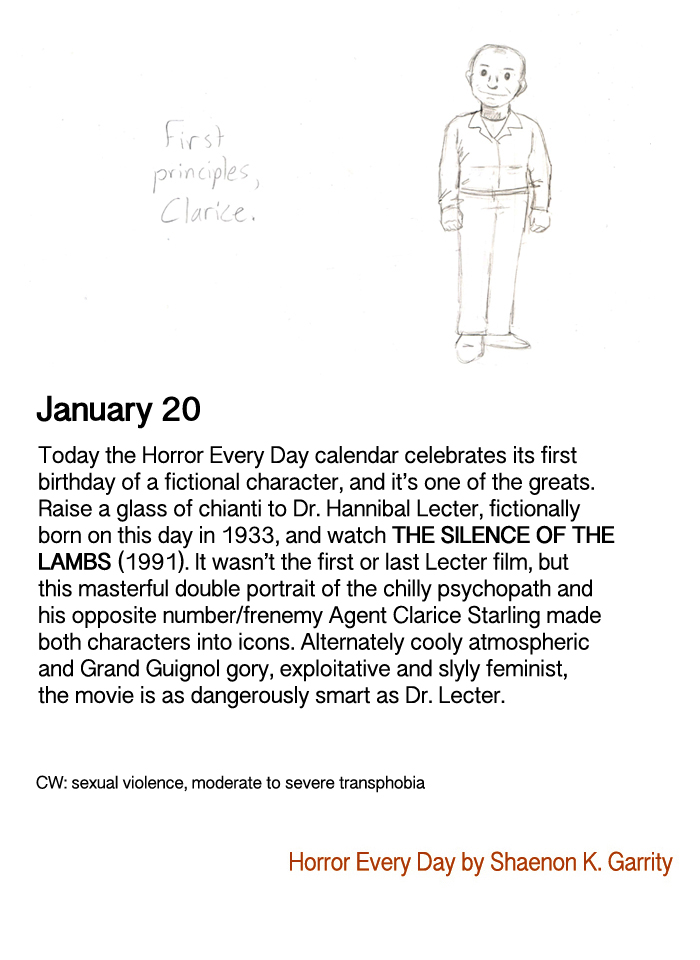 First
principles,
Clarice.
January 20
Today the Horror Every Day calendar celebrates its first
birthday of a fictional character, and it's one of the greats.
Raise a glass of chianti to Dr. Hannibal Lecter, fictionally
born on this day in 1933, and watch THE SILENCE OF THE
LAMBS (1991). It wasn't the first or last Lecter film, but
this masterful double portrait of the chilly psychopath and
his opposite number/frenemy Agent Clarice Starling made
both characters into icons. Alternately cooly atmospheric
and Grand Guignol gory, exploitative and slyly feminist,
the movie is as dangerously smart as Dr. Lecter.
CW: sexual violence, moderate to severe transphobia
Horror Every Day by Shaenon K. Garrity